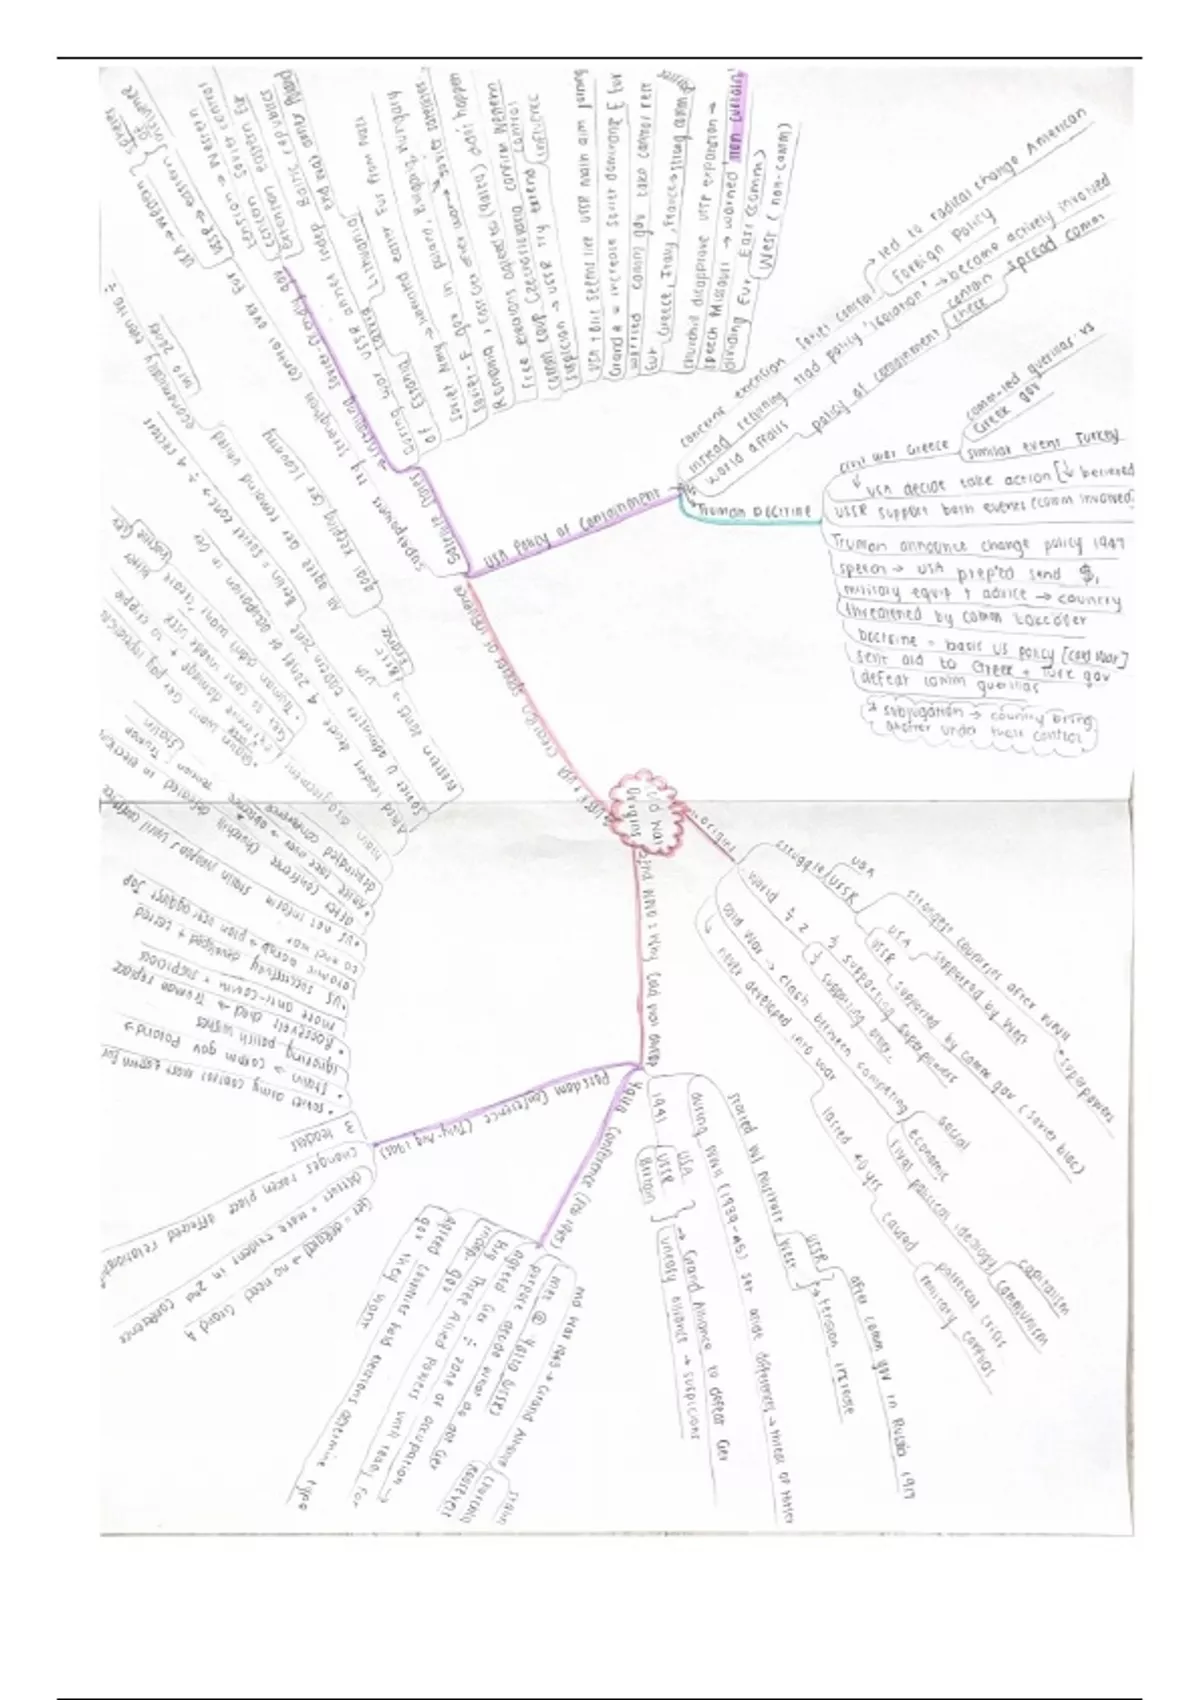 Cold War
Origins
origins
struggle
USA
USSR
strongest countries after WWII
superpowers
USA supported by West
USSR supported by comm gov (soviet bloc)
World ÷ 2
supporting superpowers
supporting other
Cold War → clash between competing
social
economic
rival political ideology
capitalism
communism
never developed into war
lasted 40 yrs
caused
political crisis
military conflicts
started
USSR
West
tension increase
after comm gov in Russia 1917
during WWII (1939-45) set aside differences → threat of Hitler
1941
USA
USSR
Britain
→ Grand Alliance to defeat Ger
uneasy alliance → suspicions
Yalta Conference (Feb 1945)
Grand Alliance
Stalin
Churchill
Roosevelt
met @ Yalta (USSR)
purpose decide what do aft Ger
agreed Ger ÷ zone of occupation →
Big Three Allied Powers until ready for
indep. gov
agreed countries hold elections determine type
gov they want
Potsdam Conference (July-Aug 1945)
3
leaders
changes taken place affected relations
distrust = more evident in 2nd conference
Ger = defeated → no need Grand A
• soviet aiming control most eastern Eur
• Stalin → comm gov Poland →
ignoring polish wishes
• Roosevelt died → Truman replace
more anti-comm + suspicious
• US successfully developed + tested
atomic bomb → plan use against Jap
to end war
• US not inform Stalin weapon's until conference
• Attlee took over conference → absence
after Churchill defeated in elections
tension
Stalin
Truman
main disagreement
• Stalin want Ger pay reparations
extreme damage + to cripple
Ger so cant invade USSR
• Truman didn't want "create
bitter
hostile Ger"
Allied leaders decide 4 zones of occupation in Ger
Soviet U administer eastern zone
Berlin = Soviet zone → ÷ 4 sectors
Western zones →
USA
Brit
France
All agree Ger remained united
goal keeping Ger 1 country
economically
into zones
USSR + USA creation spheres of influence
superpowers try strengthen control over Eur
USA → western
USSR → eastern
spheres
of
influence
Satellite States
→ installing soviet-friendly gov
tension → Western
extension Soviet control
extension eastern Eur
During war USSR annex indep Baltic republics
of
Estonia
Latvia
Lithuania
Soviet Army → liberated easter Eur from Nazis
Soviet-F gov in Poland, Bulgaria, Hungary
Romania, East Ger after war → soviet satellites
Free elections agreed (Yalta) didn't happen
comm coup Czechoslovakia confirm Western
suspicion → USSR try extend
control
influence
USA + Brit seems like USSR main aim joining
Grand A = increase Soviet dominance E Eur
worried comm gov take control rest
Eur
Greece, Italy, France → strong comm
parties
Churchill disapprove USSR expansion →
speech Missouri → warned 'iron curtain'
dividing Eur
East (comm)
West (non-comm)
USA Policy of Containment
concerne extension Soviet control
→ led to radical change American
foreign policy
instead returning trad policy 'isolation' → become actively involved
world affairs
policy of containment
contain
check
spread comm
Truman Doctrine
civil war Greece
comm-led guerillas vs
Greek gov
similar event Turkey
USA decide take action [↓ believed
USSR support both events (comm involved)
Truman announce change policy 1947
speech → USA prep'ed send $,
military equip + advice → country
threatened by comm takeover
Doctrine = basic US policy [Cold War]
sent aid to Greek + Turk gov
defeat comm guerillas
* subjugation → country bring
another under their control